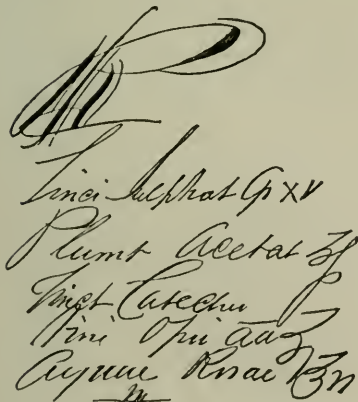 ℞
Zinci Sulphat Gr XV
Plumb Acetat ʒſ
Tinct Catechu
Vini Opii aa ʒ
Aquae Rosae ℥vi
M